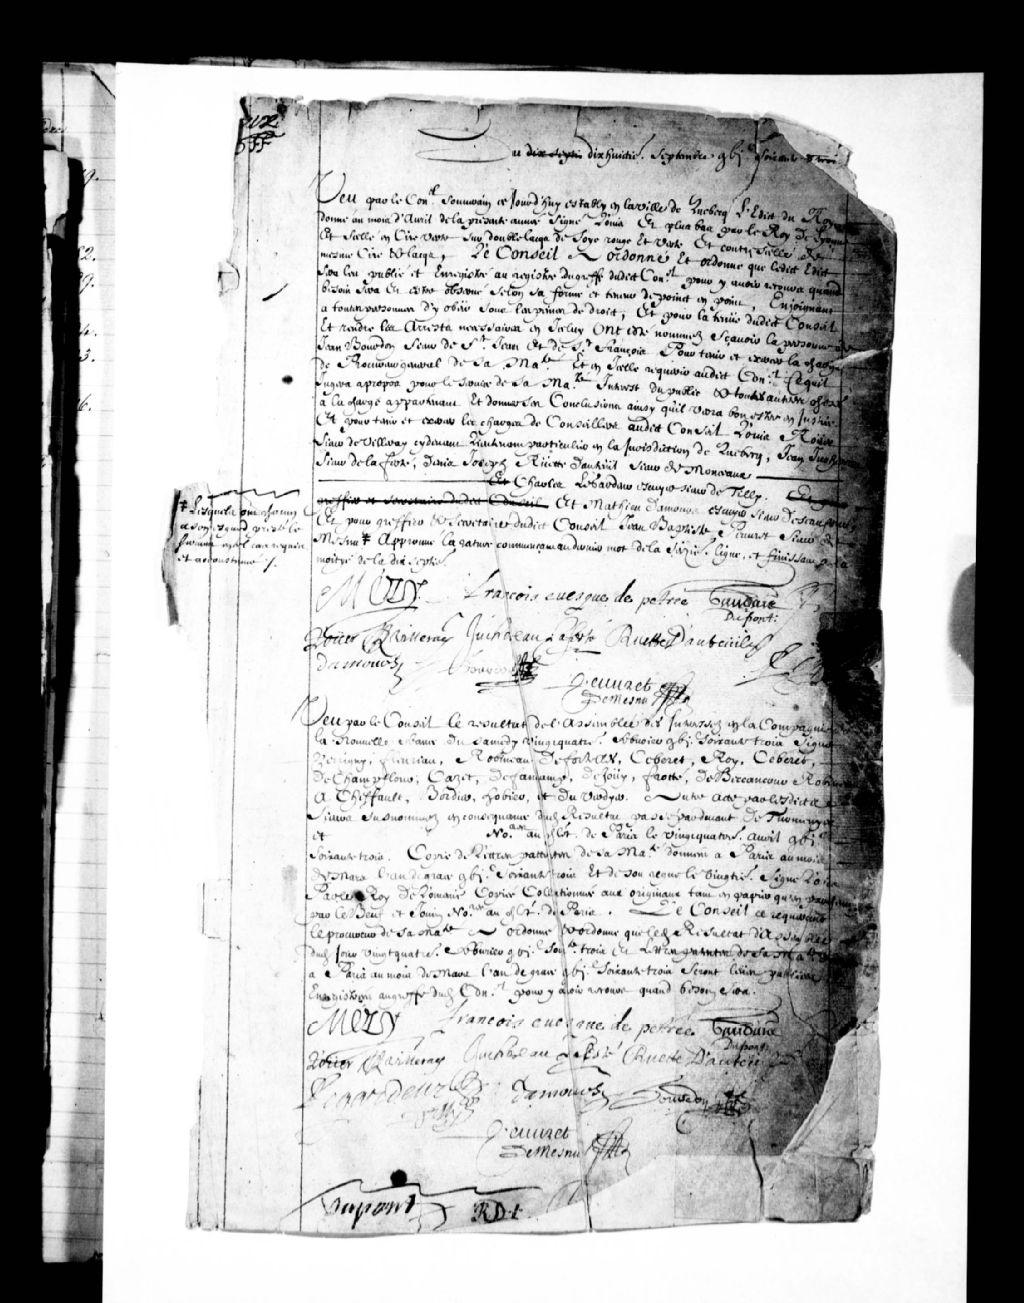 Du dix septie dixhuitie. Septembre gbj.c Soixante trois
Veu par le Con.el Souuerain ce Jourd'huy estably en la ville de Quebecq l'Edict du Roy
donné au mois d'Auril de la presente année Signé Louis Et plus bas par le Roy de Lyonne
Et Scellé en Cire verte sur double lacqs de soye rouge Et verte Et contrescellé de
mesme Cire & lacqs, Le Conseil A ordonné Et ordonne que ledict Edict
sera leu publié et Enregistré au registre du greffe dudict Con.el pour y auoir recours quand
besoin sera Et estre obserué selon sa forme et teneur de point en point, Enjoignant
a toutes personnes d'y obeir sous les peines de droict, Et pour la tenue dudict Conseil
Et rendre les Arrests necessaires en Iceluy Ont esté nommez Sçauoir la personne de
Jean Bourdon Sieur de S.t Jean Et de S.t François Pour tenir et exercer la charge
de Procureur general de Sa Ma.té Et en Icelle requerir audict Con.el Ce quil
Jugera apropos pour le seruice de Sa Ma.té Interest du public & toutes autres choses
a la charge appartenant Et donner ses Conclusions ainsy qu'il verra bon estre en Justice
Et pour tenir et exercer les charges de Conseillers audict Conseil Louis Roüer
Sieur de Villeray cydeuant Lieutenant particulier en la Jurisdiction de Quebecq, Jean Juchereau
Sieur de la ferté, Denis Joseph Ruette Dauteüil Sieur de Monceaux
Et Charles Legardeur escuyer sieur de Tilly. Et pour
greffier et secretaire dudict Conseil Et Mathieu Damours escuyer sieur Deschaufour
Et pour greffier & secretaire dudict Conseil Jean Baptiste Peuuret Sieur de
Mesnu # Approuué la rature commenceant au dernier mot de la ligne, et finissant a la
moityé de la dix septie.
# Lesquels ont chacun
a son esgard presté le
serment en tel cas requis
et accoustumé /.
Mézy françois euesque de petrée Gaudais
Dupont.
Roüer Villeray Juchereau Laferté Ruette Dauteüil
damours Bourdon
Peuuret
DeMesnu
Veu par le Conseil le resultat de l'Assemblée des Interessez en la Compagnie
la Nouuelle france du samedy vingtquatre. feburier gbj.c soixante trois Signé
fleuriau, Robineau Defortel, Ceberet, Roy, Ceberet,
DeChamflour, Cazet, de Jouy, frotté, de Beccancour Robineau
A Cheffault, Bordier, hobier, et du Verdyer. Autre acte par lesdicts
Sieurs Susnommez en consequence dud. Resultat passé pardeuant de Tournuyer
et No.res au ch.let de Paris le vingtquatre. auril gbj.c
soixante trois. Copie de Lettres pattentes de Sa Ma.té donnees a Paris au mois
de Mars l'an de grace gbj.c soixante trois Et de son regne le vingtie. Signé Louis
Par le Roy De Lomenie Copies Collationnées aux originaux tant en papier qu'en parchemin
par Le Beuf et Jouin No.res au ch.let de Paris. Le Conseil ce requerant
le procureur de Sa Ma.té A ordonné & ordonne que led. Resultat d'Assemblée
dud. Jour vingtquatre. feburier gbj.c soix.te trois Et Lettres pattentes de Sa Ma.té
a Paris au mois de Mars l'an de grace gbj.c soixante trois Seront leües publiées
Enregistrées au greffe dud. Con.el pour y auoir recours quand besoin sera.
Mézy françois euesque de petrée Gaudais
Dupont.
Roüer Villeray Juchereau Laferté Ruette D'auteüil
Legardeur Damours Bourdon
Peuuret
DeMesnu
Dupont R.D.t.